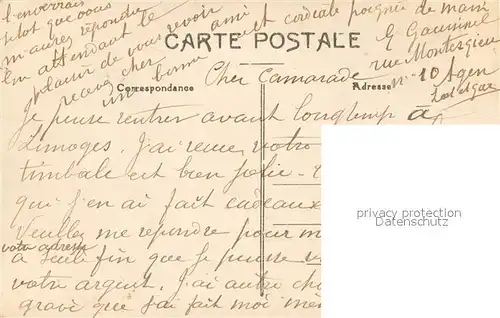 l'enverrai
plot que vous
m'aurez répondu
En attendant le
plaisir de vous revoir
recevez cher ami
une bonne et cordiale poignée de main
G
rue Montesquieu
n° 10 Agen
Lot et Gar
CARTE POSTALE
Correspondance
Adresse
Cher Camarade
Je pense rentrer avant longtemp à
Limoges. J'ai reçue votre
timbale est bien jolie
qui j'en ai fait cadeaux
Veuillez me repondre pour m
votre adresse
à seule fin que je puisse v
votre argent. J'ai autre ch
gravé que j'ai fait moi mêm
privacy protection
Datenschutz